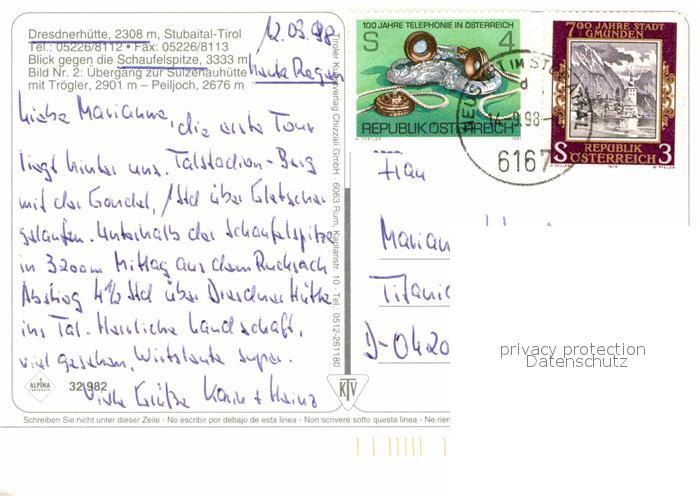 Dresdnerhütte, 2308 m, Stubaital-Tirol
Tel.: 05226/8112 • Fax: 05226/8113
Blick gegen die Schaufelspitze, 3333 m
Bild Nr. 2: Übergang zur Sulzenauhütte
mit Trögler, 2901 m – Peiljoch, 2676 m
12.09.98
heute Regen
Liebe Marianne,
die erste Tour
liegt hinter uns. Talstadion-Berg
mit der Gondel, 1 Std über Gletscher
gelaufen. Unterhalb der Schaufelspitze
in 3200m Mittag aus dem Rucksack
Abstieg 4½ Std über Dresdner Hütte
ins Tal. Herrliche Landschaft,
viel gesehen, Wirtsleute super.
Viele Grüße Karin + Heinz
ALPINA
32 982
Tiroler Kunstverlag Chizzali GmbH · 6063 Rum, Kaplanstr. 10 · Tel.: 0512-261180
KTV
Schreiben Sie nicht unter dieser Zeile - No escribir por debajo de esta linea - Non scrivere sotto questa linea - Ne rien
100 JAHRE TELEPHONIE IN ÖSTERREICH
S 4
REPUBLIK ÖSTERREICH
1981
700 JAHRE STADT
GMUNDEN
REPUBLIK
S ÖSTERREICH 3
1978
NEUSTIFT IM STUBAITAL
d
14.9.98
6167
Frau
Marian
Titanic
D-0420
privacy protection
Datenschutz